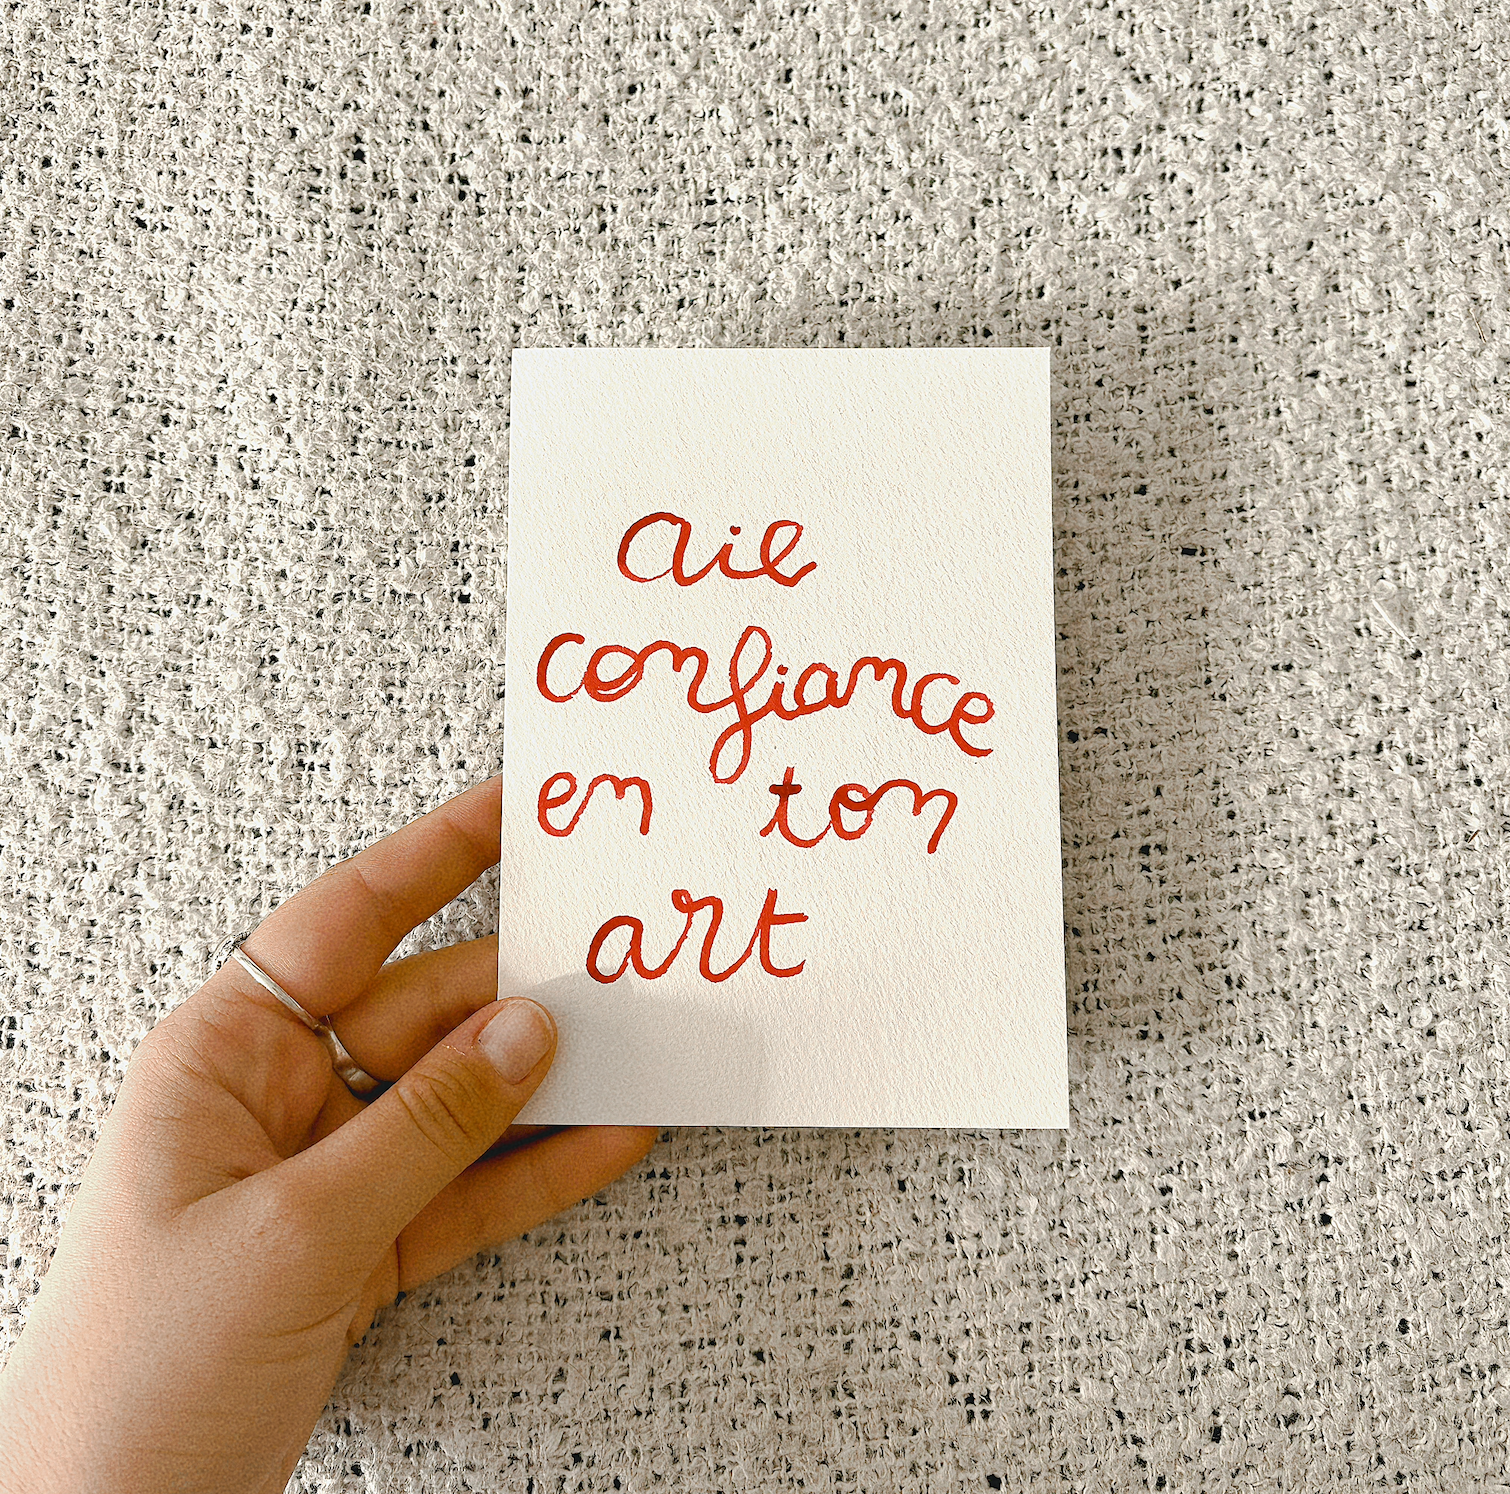 aie
confiance
en ton
art